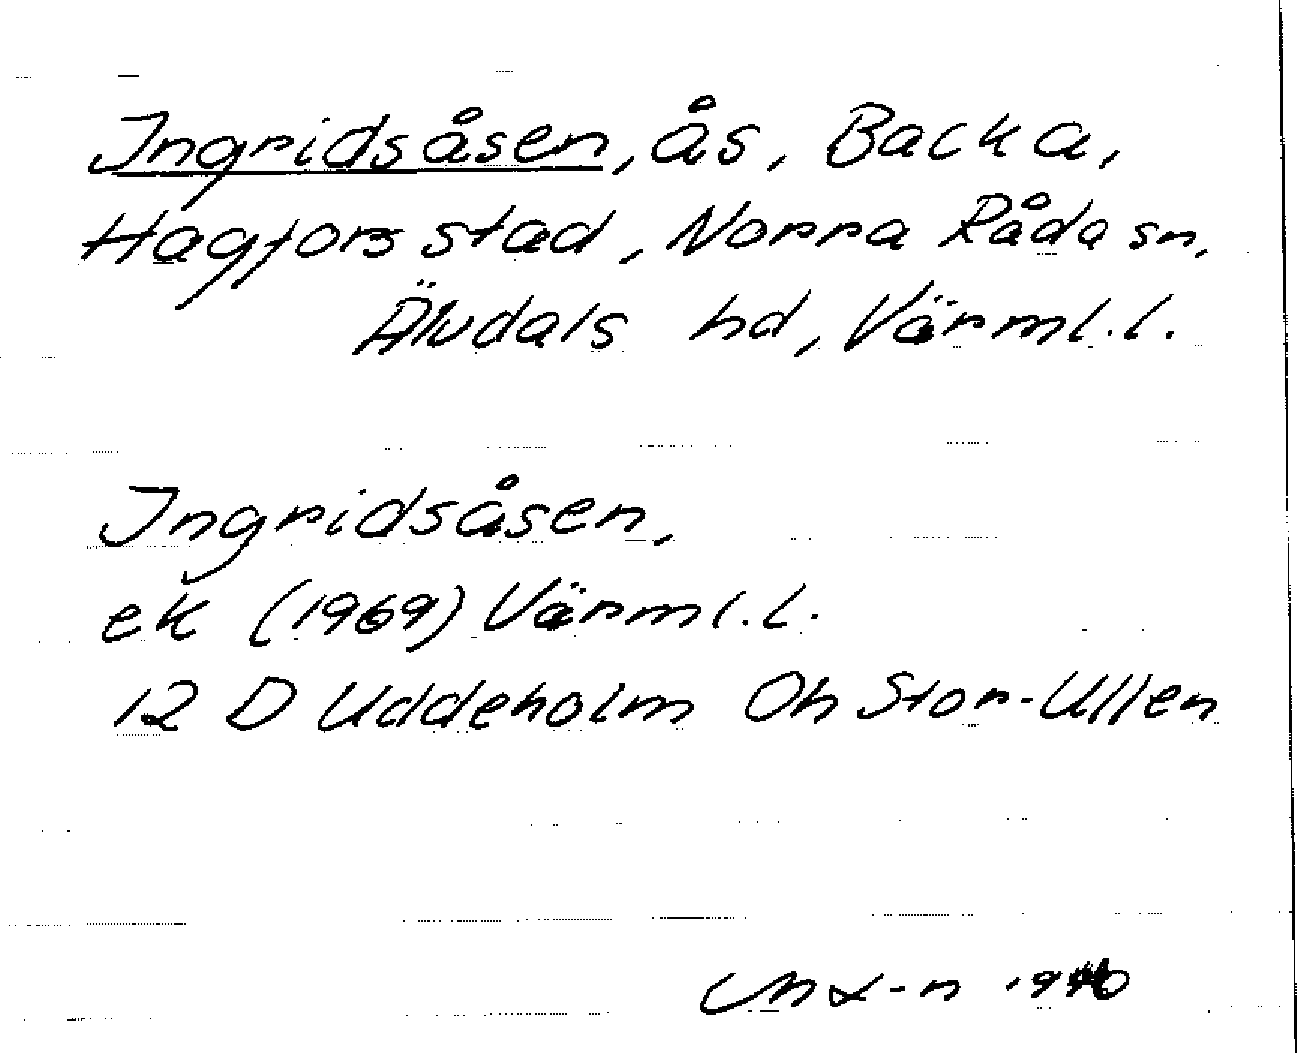 Ingridsåsen, ås, Backa,
Hagfors stad, Norra Råda sn,
Älvdals hd, Värml.l.
Ingridsåsen,
ek (1969) Värml.l.
12 D Uddeholm Oh Stor-Ullen